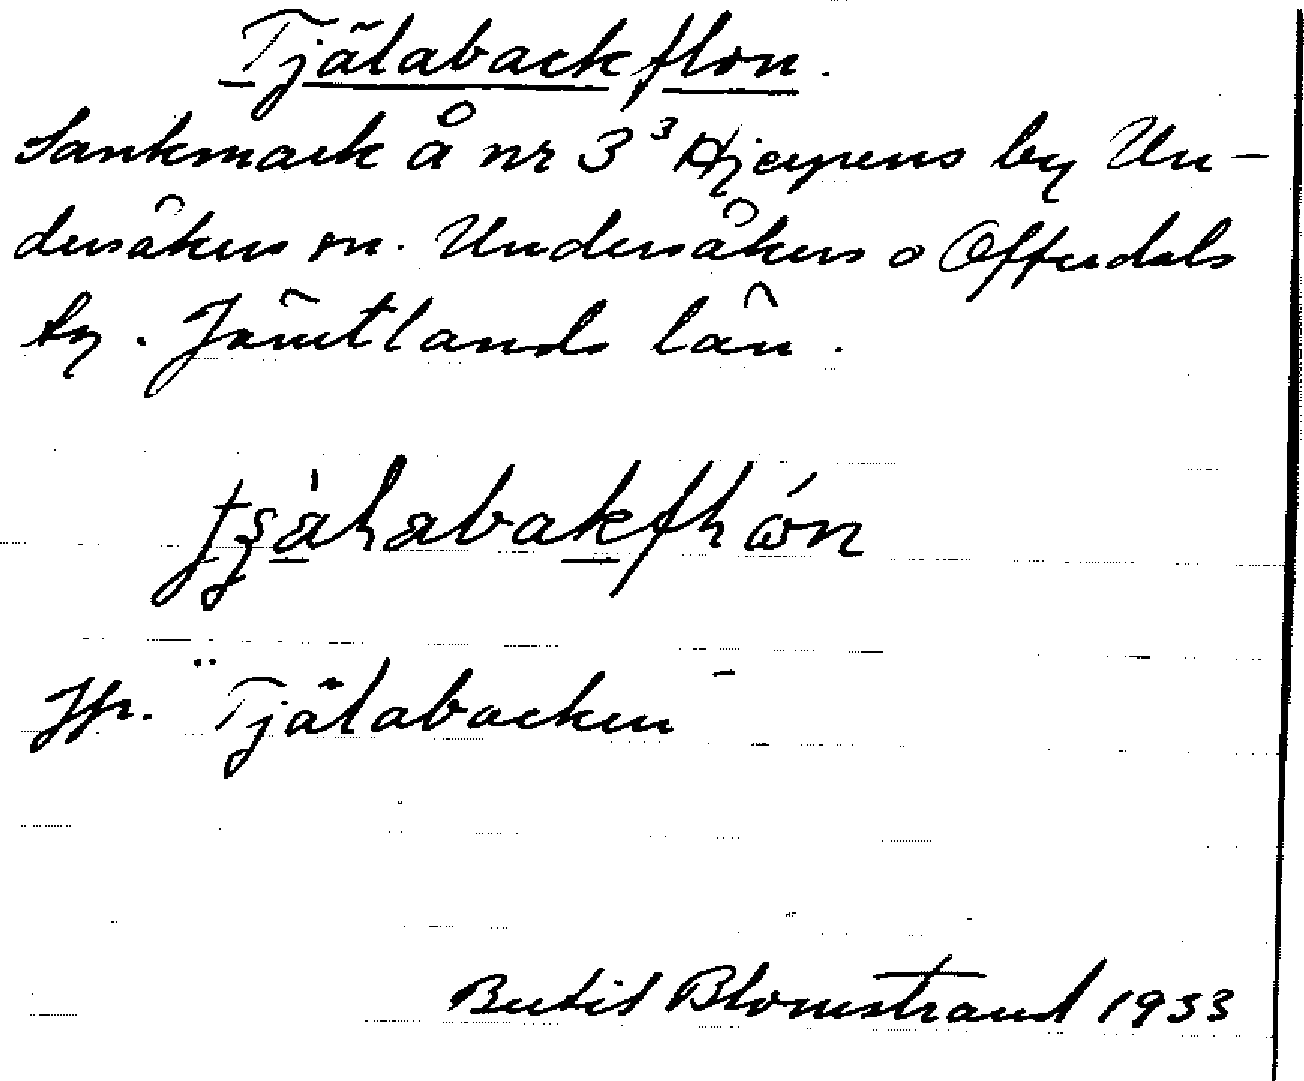 Tjälabackflon.
Sankmark å nr 3³ Hjerpens by Un-
dersåkers sn. Undersåkers o Offerdals
tg. Jämtlands län.
Jfr. Tjälabacken
Bertil Blomstrand 1933